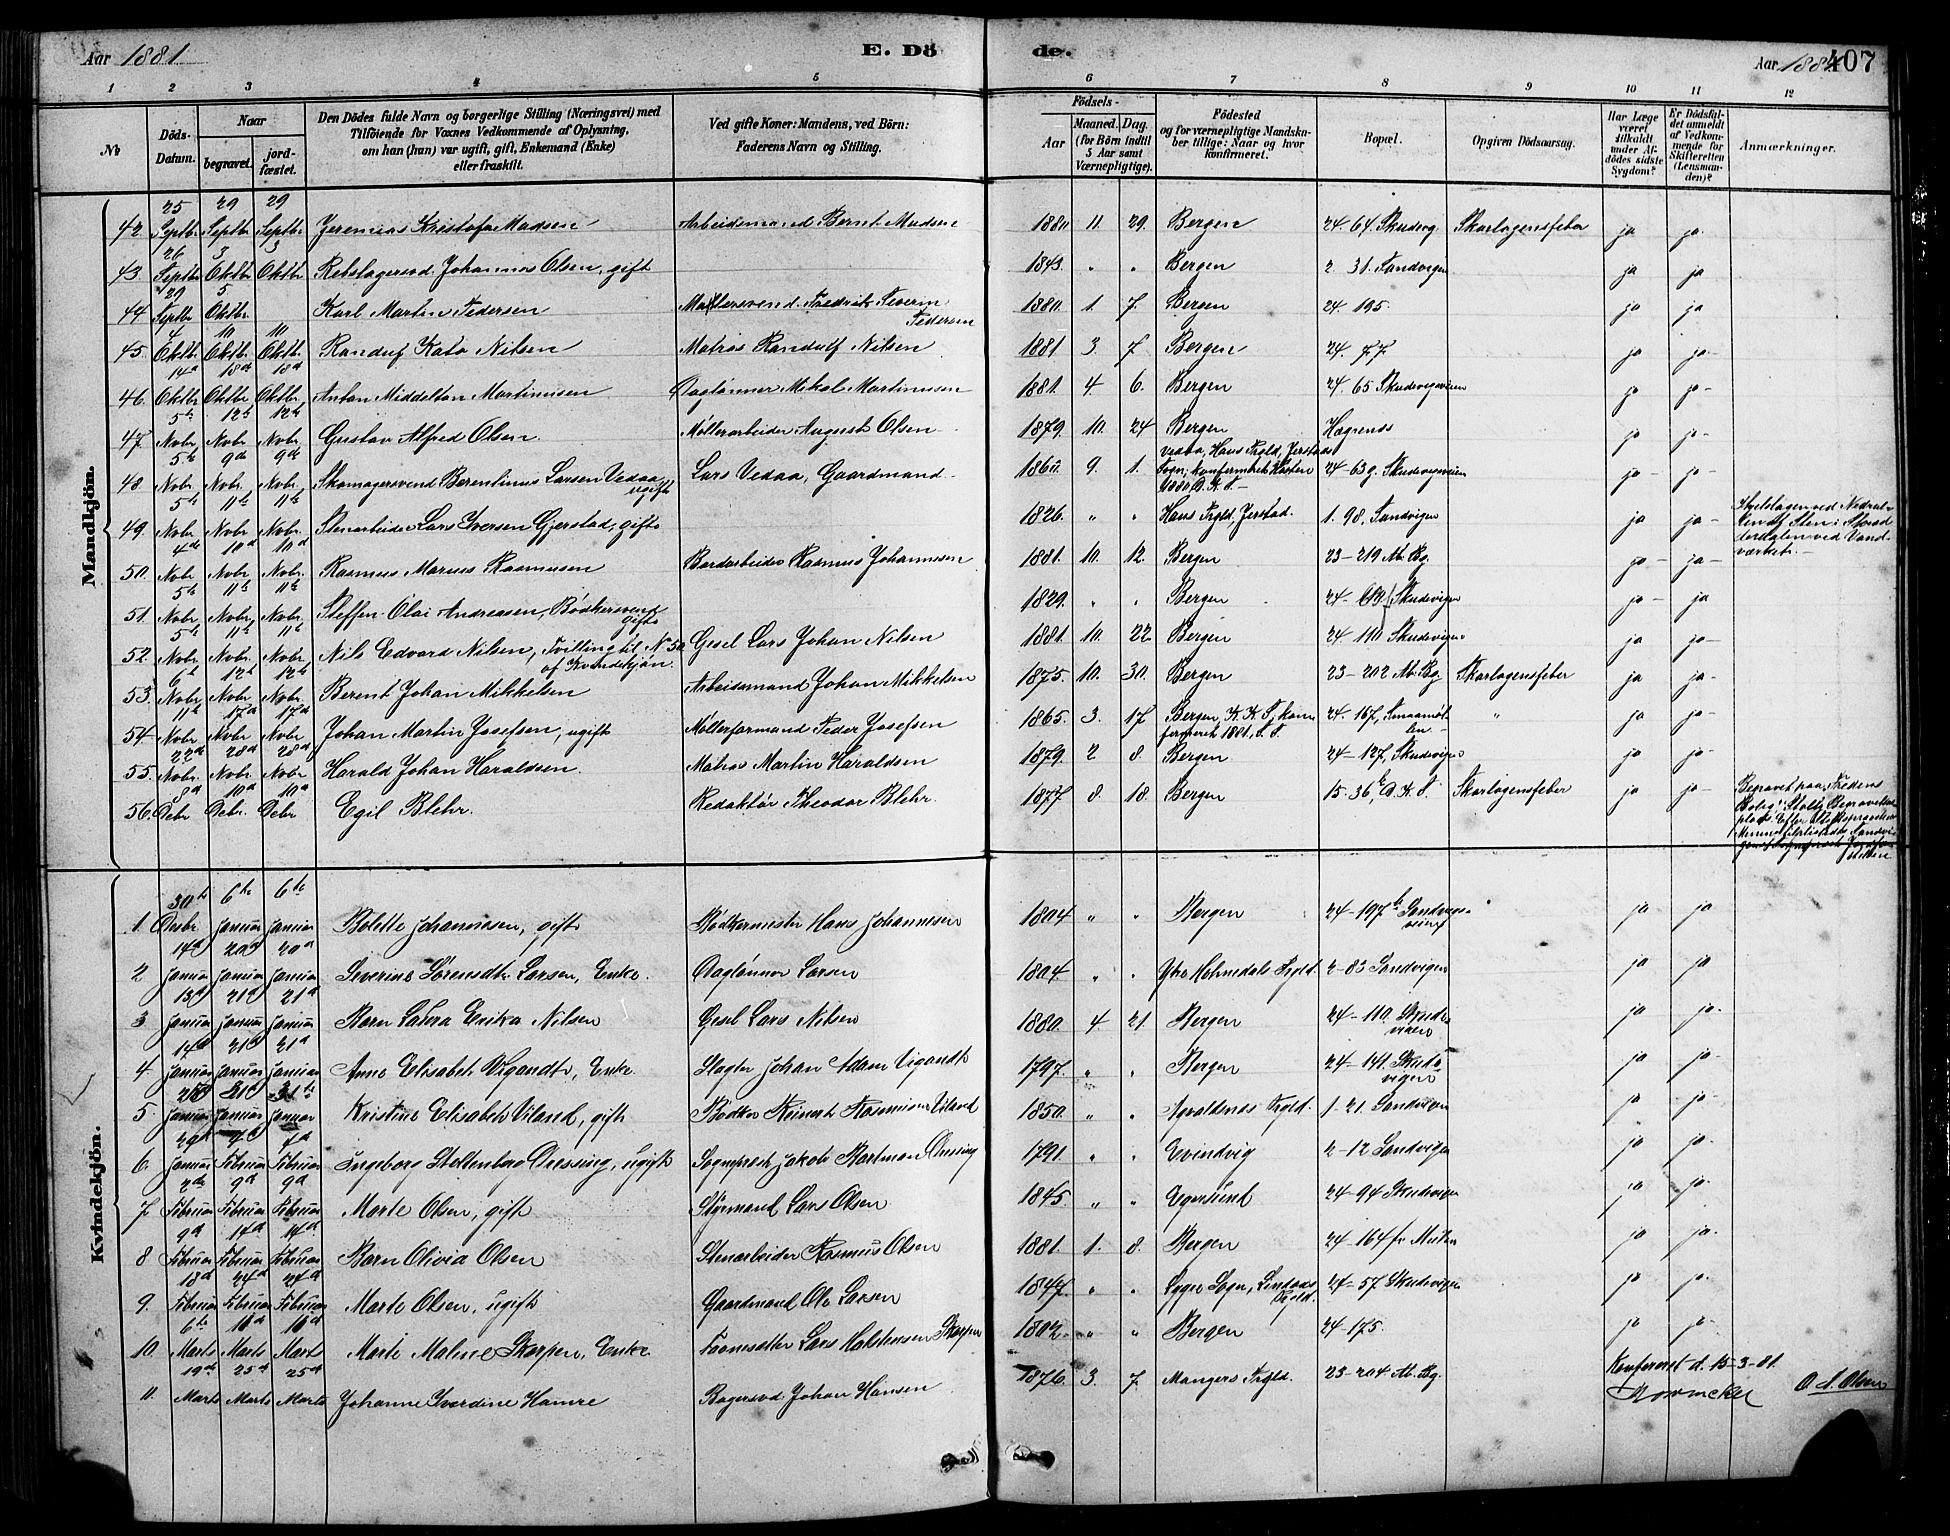 Aar 1881. E. Dö
de. Aar 188 407
1 2 3 4 5 6 7 8 9 10 11 12
№
Döds-Datum.
Naar
begravet.
jord-fæstet.
Den Dödes fulde Navn og borgerlige Stilling (Næringsvei) med
Tilföiende for Voxnes Vedkommende af Oplysning,
om han (hun) var ugift, gift, Enkemand (Enke)
eller fraskilt.
Ved gifte Koner: Mandens, ved Börn:
Faderens Navn og Stilling.
Födsels-
Aar
Maaned. Dag.
(for Börn indtil
5 Aar samt
Værnepligtige).
Födested
og for værnepligtige Mandskaber tillige: Naar og hvor
konfirmeret.
Bopæl.
Opgiven Dödsaarsag.
Har Læge været tilkaldt under Afdödes sidste Sygdom?
Er Dödsfaldet anmeldt af Vedkommende for Skifteretten (Lensmanden)?
Anmærkninger.
Mandkjön.
42. 25 Septbr 29 Septbr 29 Septbr Jeremias Kristofer Madsen Arbeidsmand Bernt Madsen 1880 11. 29. Bergen 24. 64 Skudevig Skarlagensfeber ja ja
43. 26 Septbr 3 Oktbr 3 Oktbr Rebslagersvd Johannes Olsen, gift 1843. " " Bergen 2 31. Sandvigen ja ja
44 29 Septbr 5 Oktbr. Karl Martin Pedersen Malersvend Fredrik Severin Pedersen 1880. 1. 7. Bergen 24. 195. ja ja
45. 4 Oktbr. 10 Oktbr. 10 Oktbr. Randulf Kato Nilsen Matros Randulf Nilsen 1881 3. 7 Bergen 24. 77 ja ja
46. 14d Oktbr 18de Oktbr 18de Oktbr. Anton Middelton Martinusen Daglønner Mikal Martinusen 1881. 4. 6. Bergen 24. 65 Skudevigsveien jo jo
47. 5te Novbr 12te Novbr 12te Novbr Gustav Alfred Olsen Møllerarbeider August Olsen 1879. 10. 24 Bergen Hægrenes jo jo
48. 5te Novbr 9de Novbr. 9de Novbr Skomagersvend Berentinus Larsen Vedaa, ugift Lars Vedaa, Gaardmand 1860. 9. 1. Vedaa, Haus Prgld, Jerstad Sogn; konfirmeret 24-63g. Skudevigsveien jo jo
49. 5te Novbr. 11te Novbr. 11te Novbr. Stenarbeider Lars Iversen Gjerstad, gift 1826. " " Haus Prgld, Jerstad. 1. 98, Sandvigen ja ja
Ihjelslagen ved Nedrulten af Sten i ved Vandværket.
50. 4de Novbr 10d Novbr 10d Novbr. Rasmus Marius Rasmusen Bordarbeider Rasmus Johannesen 1881. 10. 12. Bergen 23-219 Ab. Bg. jo ja
51. 5te Novbr. 11te Novbr. 11te Novbr. Steffen Olai Andreasen, Bødkersvend gift 1829. " " Bergen 24- Skudevigen jo ja
52 5te Novbr 11te Novbr. 11te Novbr. Nils Edvard Nilsen, Tvilling til N. 50 af Kvindekjøn. Gesel Lars Johan Nilsen 1881. 10. 22 Bergen 24-110 Skudevigen ja jo
53. 6te Novbr. 12te Novbr. 12te Novbr. Berent Johan Mikkelsen Arbeidsmand Johan Mikkelsen 1875. 10. 30. Bergen 23-202 Ab. Bg Skarlagensfeber ja ja
54 11te Novbr 17d Novbr 17d Novbr Johan Martin Josefsen, ugift Møllerformand Peder Josefsen 1865. 3. 17 Bergen, K. K. S, konfirmeret 1881, 24. 167, Smaamøllen " ja jo
55. 22d Novbr. 28d Novbr. 28d Novbr. Harald Johan Haraldsen. Matros Martin Haraldsen 1879. 2 8. Bergen 24-127, Skudevigen jo jo
56. 8d Debr. 10d Debr. 10d Debr Egil Blehr. Redaktør Theodor Blehr. 1877 8. 18. Bergen 15. 36, D. K. S Skarlagensfeber ja jo
Begravet paa Fredens Bolig i Støltz Begravelsesplads. Efter
Kvindekjön.
1. 30te Decbr. 6te Januar 6te Januar Bolette Johannesen, gift Bødkermester Hans Johannesen 1804 " " Bergen 24-197 Sandvigsveien ja ja
2 14d Januar 20d Januar 20d Januar Severine Sørensdtr Larsen, Enke. Daglønner Larsen 1804. " " Ytre Holmedals Prgld. 2-83 Sandvigen ja ja
3 13d Januar 21d Januar 21d Januar Barn Laura Erika Nilsen Gesel Lars Nilsen 1880. 4. 21. Bergen 24-110. Skudevigen ja ja
4 14d Januar 21d Januar 21d Januar Anne Elisabet Vigandt, Enke Slagter Johan Adam Vigandt 1797. " " Bergen 24-141. Skudevigen ja ja
5. Januar Januar 31te Januar Kristine Elisabet Viland, gift Bødker Reinert Rasmusen Viland 1850. " " Prgld. 1-21. Sandvigen ja ja
6. 29d Januar 7d Februar 7d Februar Ingeborg Stoltenberg Dressing, ugift Sogneprest Jakob Hartman Dressing 1791. " " Evindvig 2-12 Sandvigen ja ja
7 2de Februar 9d Februar 9d Februar Marte Olsen, gift Styrmand Lars Olsen 1845. " " Egersund 24-94 Skudevigen ja ja
8 9d Februar 14d Februar 14d Februar Barn Olivia Olsen Stenarbeider Rasmus Olsen 1881. 1. 8. Bergen 24-164 ja ja
9. 18d Februar 24d Februar 24d Februar Marte Olsen, ugift Gaardmand Ole Larsen 1847. " " Sogn, Lindaas Prgld. 24-57 Skudevigen ja ja
10. 6te Marts 10d Marts 10d Marts Marte Malene Skorpen, Enke Lars Holstensen Skorpen 1802. " " Bergen 24-175. ja ja
11. 19de Marts 25d Marts 25d Marts Johanne Iverdine Hamre Bagersvd Johan Hansen 1876. 3. 7. Mangers Prgld. 23-204 Ab. Bg.
Konfereret d. 15-3-81.